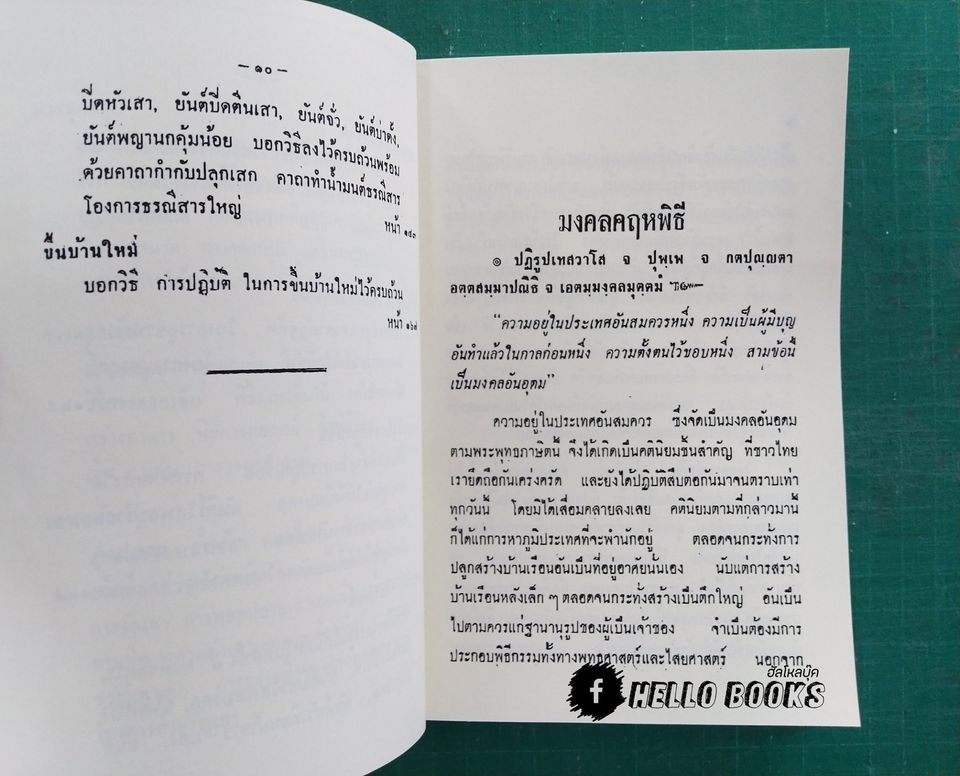 — ๑๐ —
ปิดหัวเสา, ยันต์ปิดตีนเสา, ยันต์จั่ว, ยันต์บ่าตั้ง,
ยันต์พญานกคุ้มน้อย บอกวิธีลงไว้ครบถ้วนพร้อม
ด้วยคาถากำกับปลุกเสก คาถาทำน้ำมนต์ธรณีสาร
โองการธรณีสารใหญ่
หน้า ๑๔๓
ขึ้นบ้านใหม่
บอกวิธี การปฏิบัติ ในการขึ้นบ้านใหม่ไว้ครบถ้วน
หน้า ๑๖๗
มงคลคฤหพิธี
๏ ปฏิรูปเทสวาโส จ ปุพฺเพ จ กตปุญฺญตา
อตฺตสมฺมาปณิธิ จ เอตมฺมงฺคลมุตฺตมํ
“ความอยู่ในประเทศอันสมควรหนึ่ง ความเป็นผู้มีบุญ
อันทำแล้วในกาลก่อนหนึ่ง ความตั้งตนไว้ชอบหนึ่ง สามข้อนี้
เป็นมงคลอันอุดม”
ความอยู่ในประเทศอันสมควร ซึ่งจัดเป็นมงคลอันอุดม
ตามพระพุทธภาษิตนี้ จึงได้เกิดเป็นคตินิยมชั้นสำคัญ ที่ชาวไทย
เรายึดถือกันเคร่งครัด และยังได้ปฏิบัติสืบต่อกันมาจนตราบเท่า
ทุกวันนี้ โดยมิได้เสื่อมคลายลงเลย คตินิยมตามที่กล่าวมานี้
ก็ได้แก่การหาภูมิประเทศที่จะพำนักอยู่ ตลอดจนกระทั่งการ
ปลูกสร้างบ้านเรือนอันเป็นที่อยู่อาศัยนั้นเอง นับแต่การสร้าง
บ้านเรือนหลังเล็ก ๆ ตลอดจนกระทั่งสร้างเป็นตึกใหญ่ อันเป็น
ไปตามควรแก่ฐานานุรูปของผู้เป็นเจ้าของ จำเป็นต้องมีการ
ประกอบพิธีกรรมทั้งทางพุทธศาสตร์และไสยศาสตร์ นอกจาก
ฮัลโหลบุ๊ค
f HELLO BOOKS